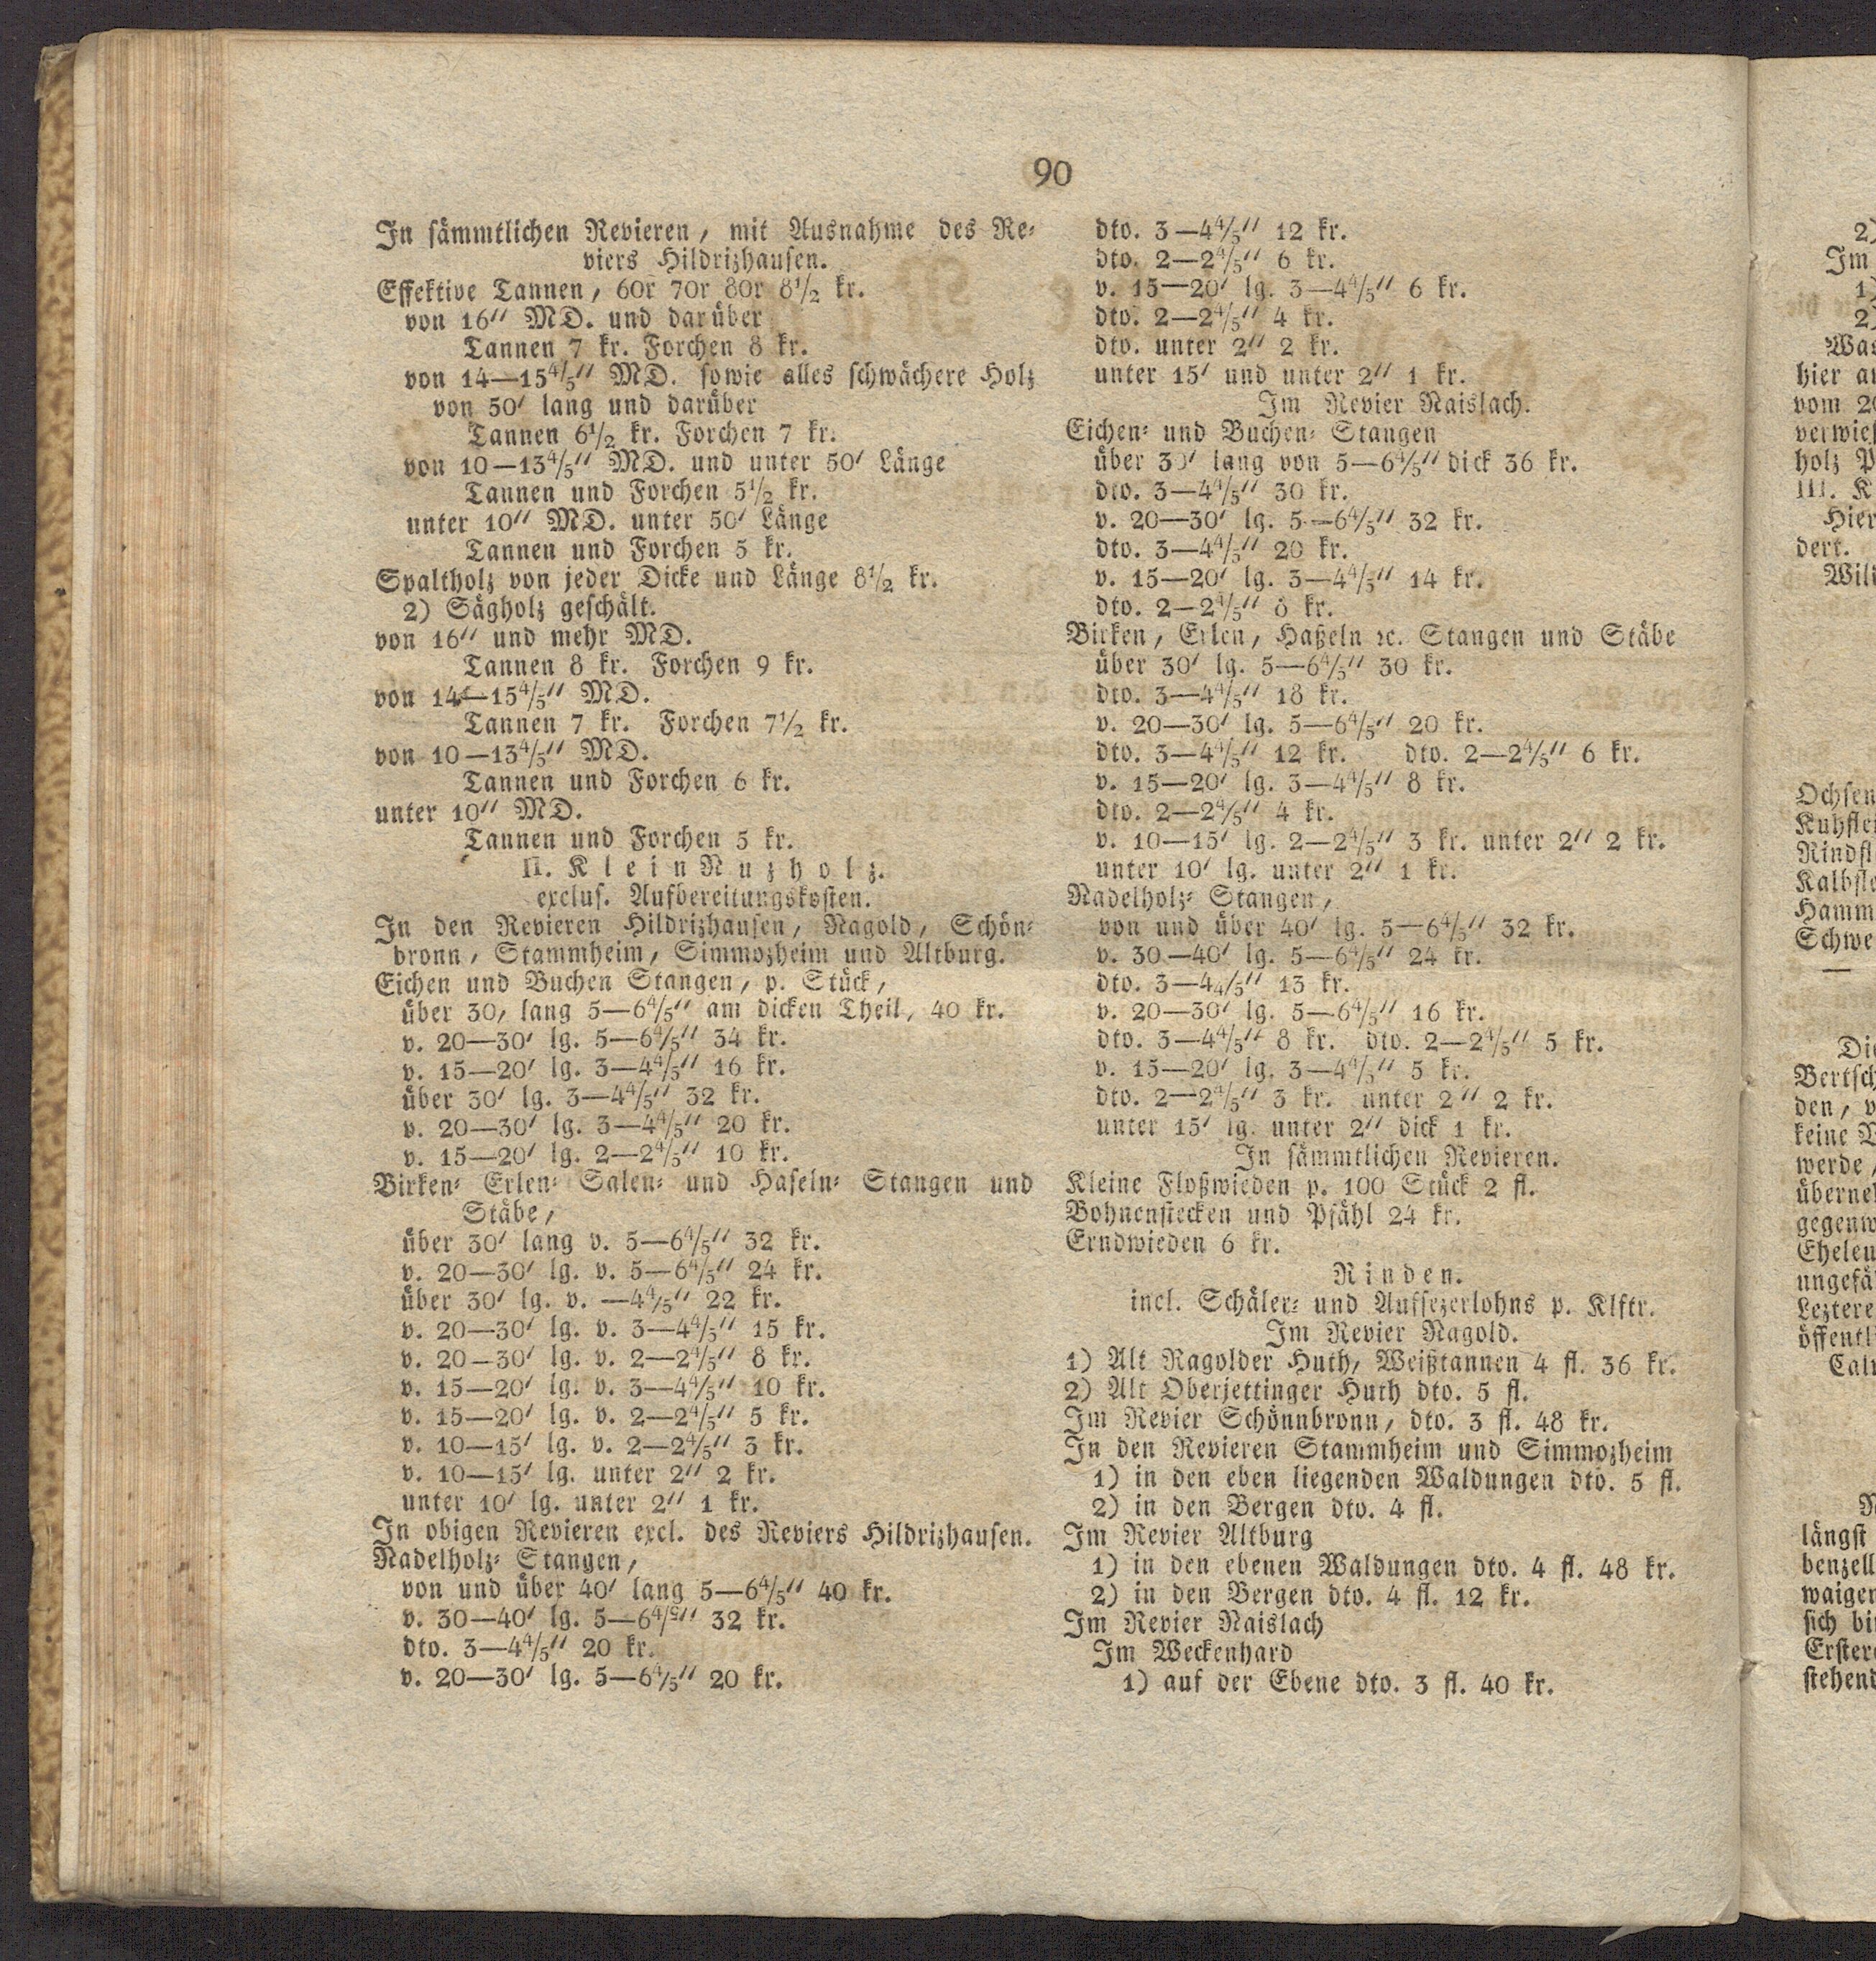 90
In sämmtlichen Revieren, mit Ausnahme des Re-
viers Hildrizhausen.
Effektive Tannen, 60r 70r 80r 8½ kr.
von 16" MD. und darüber
Tannen 7 kr. Forchen 8 kr.
von 14—15⅘" MD. sowie alles schwächere Holz
von 50' lang und darüber
Tannen 6½ kr. Forchen 7 kr.
von 10—13⅘" MD. und unter 50' Länge
Tannen und Forchen 5½ kr.
unter 10" MD. unter 50' Länge
Tannen und Forchen 5 kr.
Spaltholz von jeder Dicke und Länge 8½ kr.
2) Sägholz geschält.
von 16" und mehr MD.
Tannen 8 kr. Forchen 9 kr.
von 14—15⅘" MD.
Tannen 7 kr. Forchen 7½ kr.
von 10—13⅘" MD.
Tannen und Forchen 6 kr.
unter 10" MD.
Tannen und Forchen 5 kr.
II. KleinNuzholz.
exclus. Aufbereitungskosten.
In den Revieren Hildrizhausen, Nagold, Schön-
bronn, Stammheim, Simmozheim und Altburg.
Eichen und Buchen Stangen, p. Stück,
über 30, lang 5—6⅘" am dicken Theil, 40 kr.
v. 20—30' lg. 5—6⅘" 34 kr.
v. 15—20' lg. 3—4⅘" 16 kr.
über 30' lg. 3—4⅘" 32 kr.
v. 20—30' lg. 3—4⅘" 20 kr.
v. 15—20' lg. 2—2⅘" 10 kr.
Birken- Erlen- Salen- und Haseln- Stangen und
Stäbe,
über 30' lang v. 5—6⅘" 32 kr.
v. 20—30' lg. v. 5—6⅘" 24 kr.
über 30' lg. v. —4⅘" 22 kr.
v. 20—30' lg. v. 3—4⅘" 15 kr.
v. 20—30' lg. v. 2—2⅘" 8 kr.
v. 15—20' lg. v. 3—4⅘" 10 kr.
v. 15—20' lg. v. 2—2⅘" 5 kr.
v. 10—15' lg. v. 2—2⅘" 3 kr.
v. 10—15' lg. unter 2" 2 kr.
unter 10' lg. unter 2" 1 kr.
In obigen Revieren excl. des Reviers Hildrizhausen.
Nadelholz- Stangen,
von und über 40' lang 5—6⅘" 40 kr.
v. 30—40' lg. 5—6⅘" 32 kr.
dto. 3—4⅘" 20 kr.
v. 20—30' lg. 5—6⅘" 20 kr.
dto. 3—4⅘" 12 kr.
dto. 2—2⅘" 6 kr.
v. 15—20' lg. 3—4⅘" 6 kr.
dto. 2—2⅘" 4 kr.
dto. unter 2" 2 kr.
unter 15' und unter 2" 1 kr.
Im Revier Naislach.
Eichen- und Buchen- Stangen
über 30' lang von 5—6⅘" dick 36 kr.
dto. 3—4⅘" 30 kr.
v. 20—30' lg. 5—6⅘" 32 kr.
dto. 3—4⅘" 20 kr.
v. 15—20' lg. 3—4⅘" 14 kr.
dto. 2—2⅘" kr.
Birken, Erlen, Haßeln ꝛc. Stangen und Stäbe
über 30' lg. 5—6⅘" 30 kr.
dto. 3—4⅘" 18 kr.
v. 20—30' lg. 5—6⅘" 20 kr.
dto. 3—4⅘" 12 kr. dto. 2—2⅘" 6 kr.
v. 15—20' lg. 3—4⅘" 8 kr.
dto. 2—2⅘" 4 kr.
v. 10—15' lg. 2—2⅘" 3 kr. unter 2" 2 kr.
unter 10' lg. unter 2" 1 kr.
Nadelholz- Stangen,
von und über 40' lg. 5—6⅘" 32 kr.
v. 30—40' lg. 5—6⅘" 24 kr.
dto. 3—44/5" 13 kr.
v. 20—30' lg. 5—6⅘" 16 kr.
dto. 3—4⅘" 8 kr. dto. 2—2⅘" 5 kr.
v. 15—20' lg. 3—4⅘" 5 kr.
dto. 2—2⅘" 3 kr. unter 2" 2 kr.
unter 15' lg. unter 2" dick 1 kr.
In sämmtlichen Revieren.
Kleine Floßwieden p. 100 Stück 2 fl.
Bohnenstecken und Pfähl 24 kr.
Erndwieden 6 kr.
Rinden.
incl. Schäler- und Aufsezerlohns p. Klftr.
Im Revier Nagold.
1) Alt Nagolder Huth, Weißtannen 4 fl. 36 kr.
2) Alt Oberjettinger Huth dto. 5 fl.
Im Revier Schönnbronn, dto. 3 fl. 48 kr.
In den Revieren Stammheim und Simmozheim
1) in den eben liegenden Waldungen dto. 5 fl.
2) in den Bergen dto. 4 fl.
Im Revier Altburg
1) in den ebenen Waldungen dto. 4 fl. 48 kr.
2) in den Bergen dto. 4 fl. 12 kr.
Im Revier Naislach
Im Weckenhard
1) auf der Ebene dto. 3 fl. 40 kr.
2)
Im
1)
2)
hier
vom
holz
III.
Hier
dert.
Ochsen
—
den,
keine
werde,
längst
sich